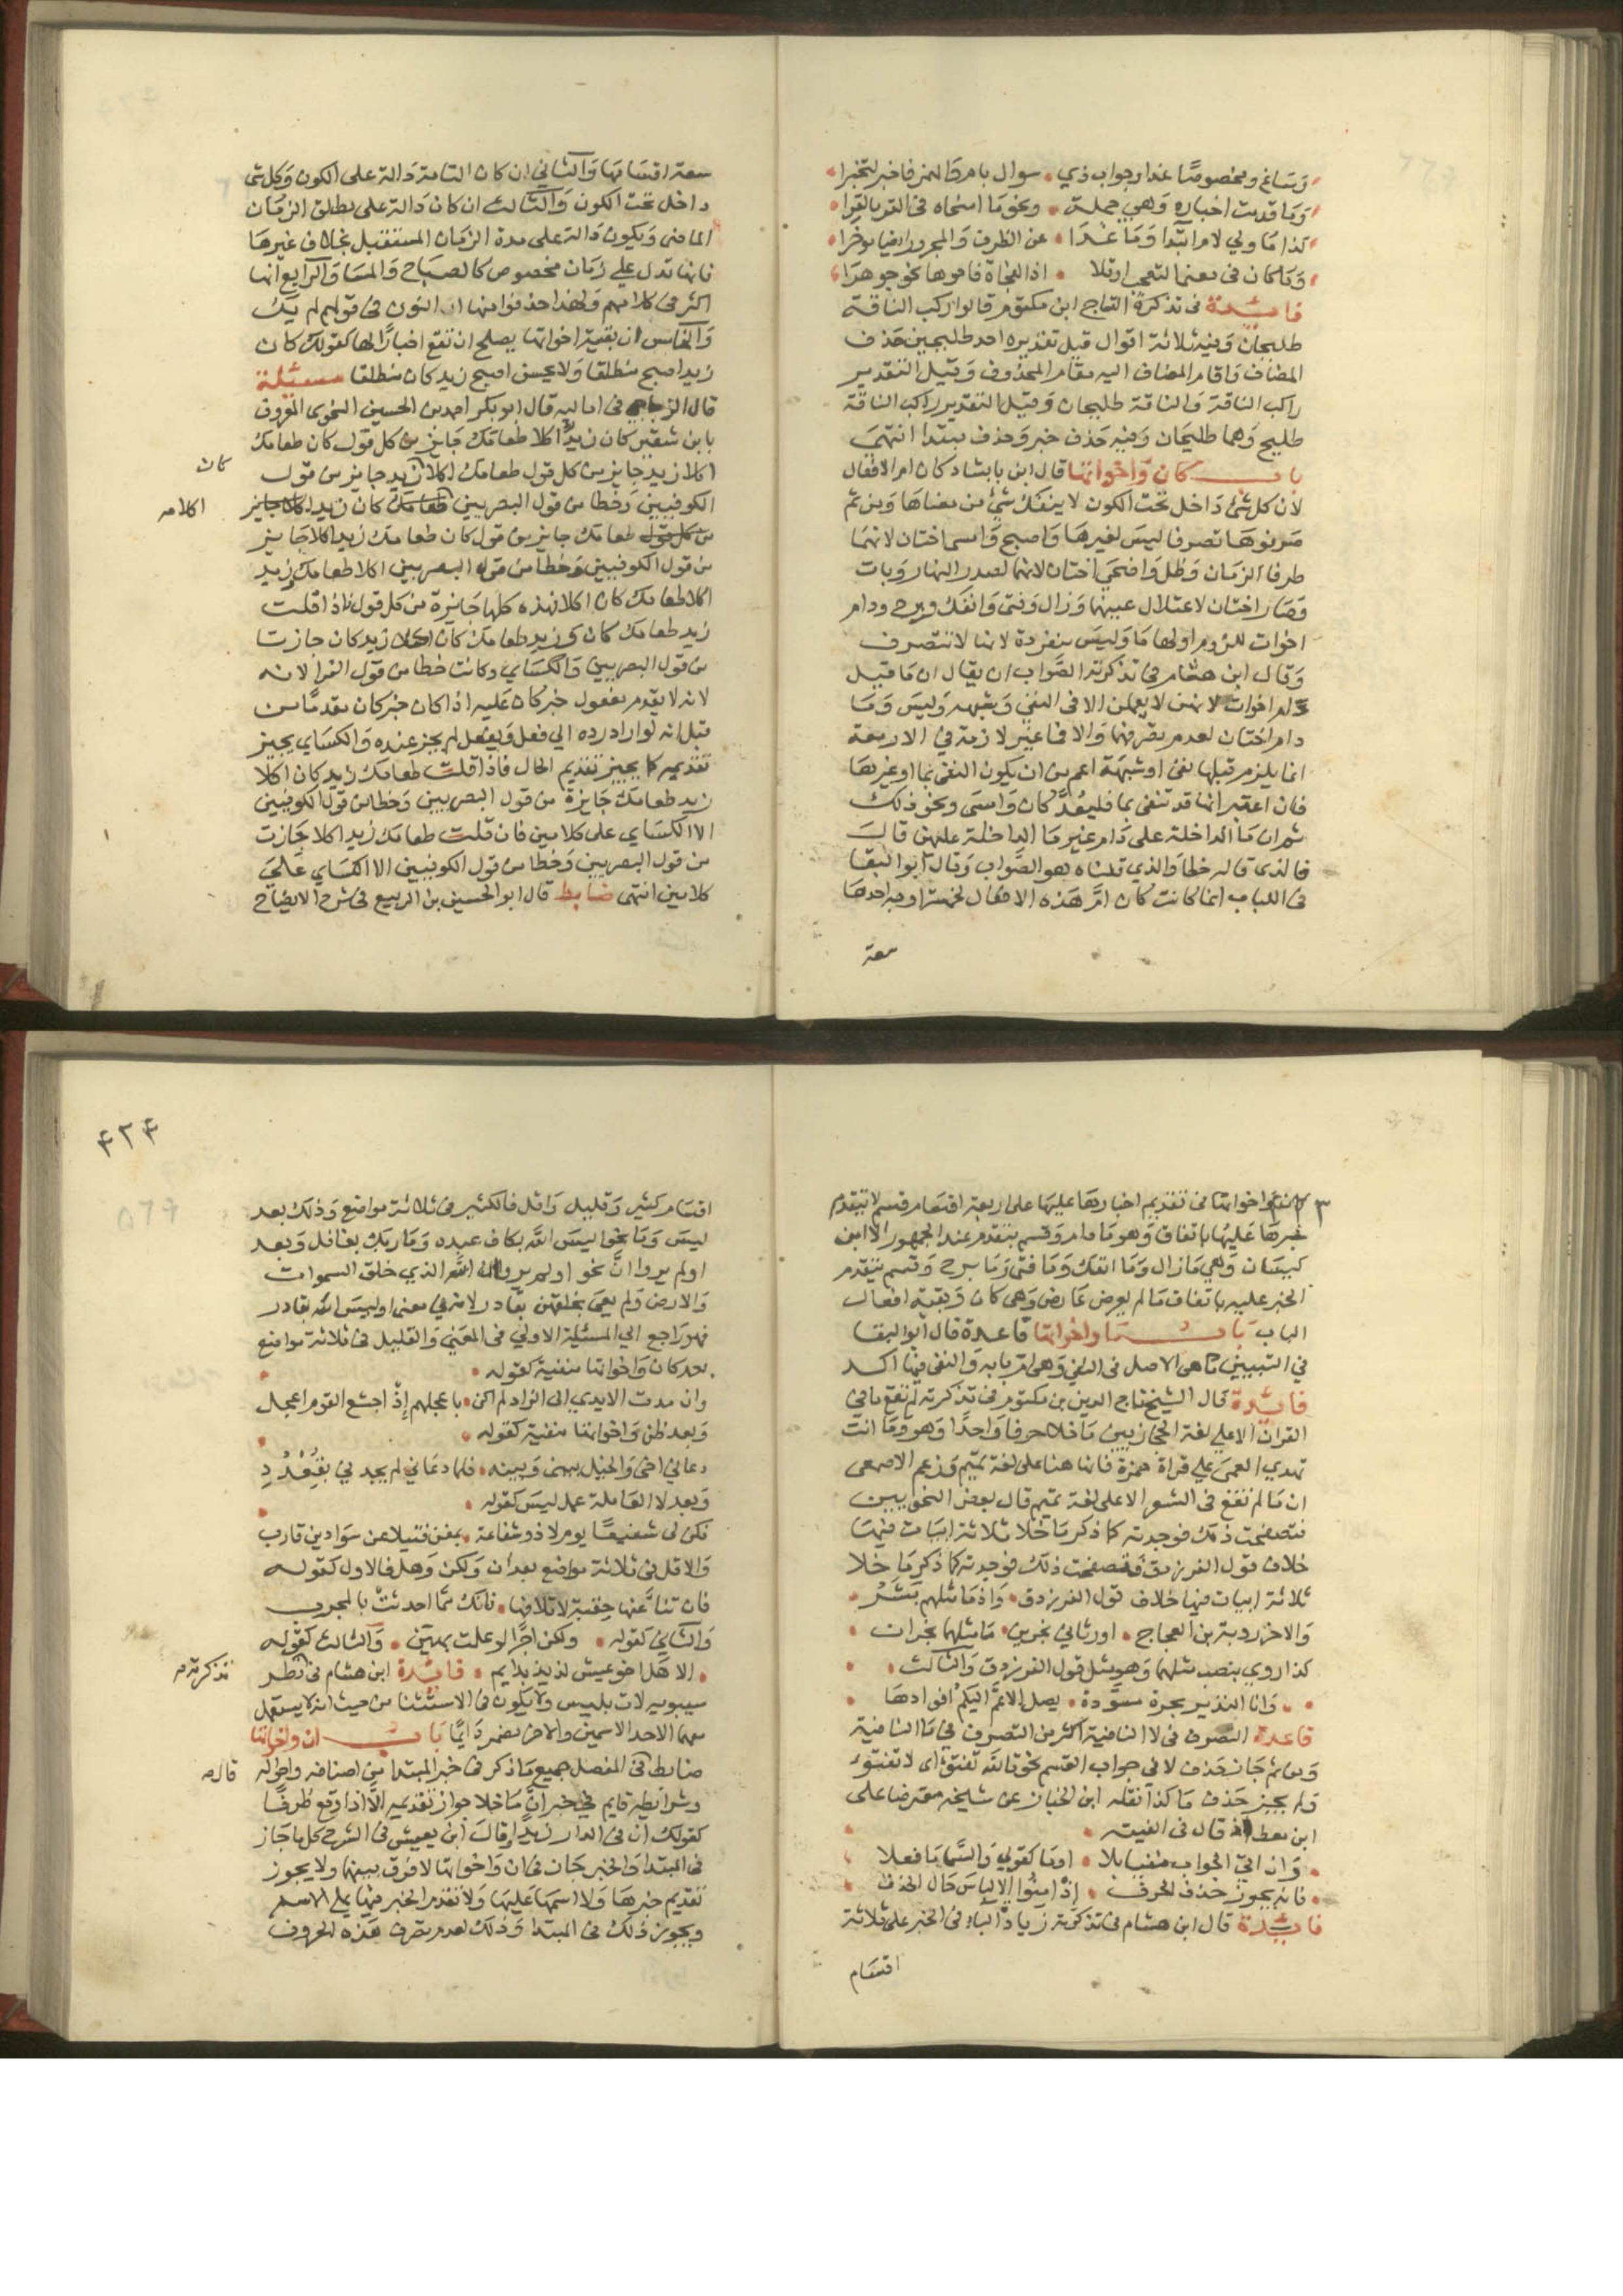 وساغ ومخصوصا غدا وجواب ذي سوال بامر ظالمز فاخبر لتخبرا
وما قدمت اخباره وهي جملة ونحو ما اسخاه في القر بالقرا
كذا ما ولي لام ابتدا وما غدا عن الظرف والمجرور ايضا موخرا
وما كان في معنى التعجب اوتلا اذا لمفاجاة فاحوها نحو جوهرا
فائدة في تذكرة التاج ابن مكتوم قالوا راكب الناقة
طليحان وفيه ثلاثة اقوال قيل تقديره احد طليحين حذف
المضاف واقام المضاف اليه مقام المحذوف وقيل التقدير
راكب الناقة والناقة طليحان وقيل التقدير راكب الناقة
طليح وهما طليحان وفيه حذف خبر وحذف مبتدا انتهى
باب كان واخواتها قال ابن بابشاد كان ام الافعال
لان كل شئ داخل تحت الكون لا ينفك شئ من معناها ومن ثم
صرفوها تصرفا ليس لغيرها واصبح وامسى اختان لانهما
طرفا الزمان وظل واضحى اختان لانهما لصدر النهار وبات
وصار اختان لاعتلال عينهما وزال وفتى وانفك وبرح ودام
اخوات للزوم اولها ما وليس منفردة لانها لا تتصرف
وقال ابن هشام في تذكرته الصواب ان يقال ان ما قبل
دام اخوات لانهن لا يعملن الا في النفي وشبهه وليس وما
دام اختان لعدم تصرفهما والا فما غير لازمة في الاربعة
انما يلزم قبلها نفي او شبهه اعم من ان يكون النفي بما او غيرها
فان اعتبر انها قد تنفى بما فليعد كان وامسى ونحو ذلك
ثم ان ما الداخلة على دام غير ما الداخلة عليهن قال
فالذي قاله خطا والذي قلناه هو الصواب وقال ابو البقا
في اللباب انما كانت كان ام هذه الافعال لخمسة اوجه احدها
سعة
سعة اقسامها والثاني ان كان التامة دالة على الكون وكل شئ
داخل تحت الكون والثالث ان كان دالة على مطلق الزمان
الماضي ويكون دالة على مدة الزمان المستقبل بخلاف غيرها
فانها تدل على زمان مخصوص كالصباح والمسا والرابع انها
اكثر في كلامهم ولهذا حذفوا منها النون في قولهم لم يك
والخامس ان بقية اخواتها يصلح ان تقع اخبارا لها كقولك كان
زيد اصبح منطلقا ولا يحسن اصبح زيد كان منطلقا مسئلة
قال الزجاجي في اماليه قال ابو بكر احمد بن الحسين النحوي المعروف
بابن شقير كان زيد اكلا طعامك جايز من كل قول كان طعامك
اكلا زيد جايز من كل قول طعامك اكلا زيد جايز من قول
كان
الكوفيين وخطا من قول البصريين طعامك كان زيد اكلا جايز
اكلا صح
من كل قول طعامك جايز من قول كان طعامك زيد اكلا جايز
من قول الكوفيين وخطا من قول البصريين اكلا طعامك زيد
اكلا طعامك كان اكلا فهذه كلها جايزة من كل قول فاذا قلت
زيد طعامك كان زيد طعامك كان اكلا زيد كان جازت
من قول البصريين والكساي وكانت خطا من قول الفرا لانه
لانه لا يقدم مفعول خبر كان عليه اذا كان خبر كان مقدما من
قبل انه لو اراد رده الى فعل ويفعل لم يجز عنده والكساي يجيز
تقديمه كما يجيز تقديم الحال فاذا قلت طعامك زيد كان اكلا
زيد طعامك جايزة من قول البصريين وخطا من قول الكوفيين
الا الكساي على كلامين فان قلت طعامك زيد اكلا جازت
من قول البصريين وخطا من قول الكوفيين الا الكساي على
كلامين انتهى ضابط قال ابو الحسين بن الربيع في شرح الايضاح
٤٢٤
٥٦٦
كان واخواتها في تقديم اخبارها عليها على اربعة اقسام قسم لا يتقدم
خبرها عليها باتفاق وهو ما دام وقسم يتقدم عند الجمهور الا ابن
كيسان وهي ما زال وما انفك وما فتى وما برح وقسم يتقدم
الخبر عليه باتفاق ما لم يعرض عارض وهي كان وبقية افعال
الباب باب ما واخواتها قاعدة قال ابو البقا
في التبيين ما هي الاصل في النفي وهي ام بابه والنفي فيها اكد
فائدة قال الشيخ تاج الدين بن مكتوم في تذكرته لم تقع ما في
القران الا على لغة الحجازيين ما خلا حرفا واحدا وهو وما انت
تهدي العمي على قراة حمزة فانها هنا على لغة تميم وزعم الاصمعي
ان ما لم تقع في الشعر الا على لغة تميم قال بعض النحويين
فتصفحت ذلك فوجدته كما ذكر ما خلا ثلاثة ابيات فيها
خلاف قول الفرزدق فتصفحت ذلك فوجدته كما ذكر ما خلا
ثلاثة ابيات فيها خلاف قول الفرزدق واذ ما مثلهم بشر
والاخر روبة بن العجاج اورثاني نجوين ما مثلهما نجران
كذا روي بنصب مثلهما وهو مثل قول الفرزدق والثالث
وانا النذير بحرة مسودة يصل الاعم اليكم اقوادها
قاعدة التصرف في لا النافية اكثر من التصرف في ما النافية
ومن ثم جاز حذف لا في جواب القسم نحو تالله تفتؤ اي لا تفتؤ
ولم يجيز حذف ما كذا نقله ابن الخباز عن شيخه معترضا على
ابن معط اذ قال في الفيته
وان اتى الجواب منفيا بلا او ما كقولي والسما ما فعلا
فانه يجوز حذف الحرف اذ امنوا الالباس حال الحذف
فائدة قال ابن هشام في تذكرته زيادة الباء في الخبر على ثلاثة
اقسام
اقسام كثير وقليل واقل فالكثير في ثلاثة مواضع وذلك بعد
ليس وما نحو اليس الله بكاف عبده وما ربك بغافل وبعد
اولم يروا ان نحو اولم يروا ان الله الذي خلق السموات
والارض ولم يعي بخلقهن بقادر لانه في معنى اوليس الله بقادر
فهو راجع الي المسئلة الاولي في المعني والقليل في ثلاثة مواضع
بعد كان واخواتها منفية كقوله
وان مدت الايدي الى الزاد لم اكن باعجلهم اذ اجشع القوم اعجل
وبعد ظن واخواتها منفية كقوله
دعاني اخي والخيل بيني وبينه فلما دعاني لم يجدني بقعدد
وبعد لا العاملة عمل ليس كقوله
فكن لي شفيعا يوم لا ذو شفاعة بمغن فتيلا عن سواد بن قارب
والاقل في ثلاثة مواضع بعد ان ولكن وهل فالاول كقوله
فان تنا عنها حقبة لا تلاقها فانك مما احدثت بالمجرب
والثاني كقوله ولكن اجرا لو علمت بهين والثالث كقوله
الا هل اخو عيش لذيذ بدايم فائدة ابن هشام في نظر
تذكرته صح
سيبويه لات بليس ولا يكون في الاستثنا من حيث انه لا يستعمل
معها الا احد الاسمين والاخر مضمر دايما باب ان واخواتها
ضابط في المفصل جميع ما ذكر في خبر المبتدا من اصنافه واحواله
قال صح
وشرائطه قايم في خبر ان ما خلا جواز تقديمه الا اذا وقع ظرفا
كقولك ان في الدار زيدا قال ابن يعيش في الشرح كل ما جاز
في المبتدا والخبر جاز في ان واخواتها لا فرق بينهما ولا يجوز
تقديم خبرها ولا اسمها عليها ولا تقدم الخبر فيها على الاسم
ويجوز ذلك في المبتدا وذلك لعدم تصرف هذه الحروف